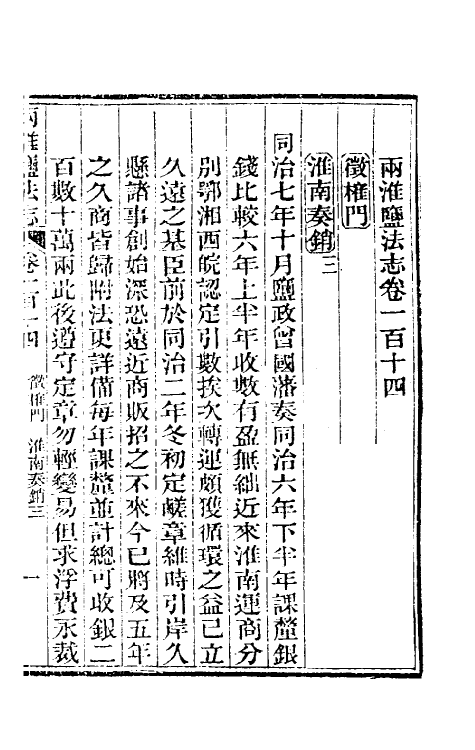 兩淮鹽法志卷一百十四
徵榷門
淮南奏銷三
同治七年十月鹽政曾國藩奏同治六年下半年課釐銀
錢比較六年上半年收數有盈無絀近來淮南運商分
別鄂湘西皖認定引數挨次轉運頗獲循環之益已立
久遠之基臣前於同治二年冬初定鹺章維時引岸久
懸諸事創始深恐遠近商販招之不來今已將及五年
之久商皆歸附法更詳備每年課釐並計總可收銀二
百數十萬兩此後遵守定章勿輕變易但求浮費永裁
兩淮鹽法志 卷一百十四 徵榷門 淮南奏銷三 一